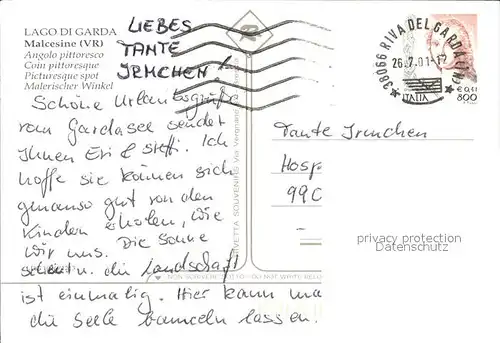 LAGO DI GARDA
Malcesine (VR)
Angolo pittoresco
Coin pittoresque
Picturesque spot
Malerischer Winkel
LIEBES
TANTE
IRMCHEN!
Schöne Urlaubsgrüße
vom Gardasee sendet
Ihnen Eri & Steffi. Ich
hoffe sie können sich
genauso gut von den
Kindern erholen, wie
wir uns. Die Sonne
scheint. die Landschaft
ist einmalig. Hier kann ma
die Seele baumeln lassen.
38066 RIVA DEL GARDA (TN)
26.7.01-12
ITALIA
€ 0,41
800
Tante Irmchen
Hosp
99C
privacy protection
Datenschutz
VETTA SOUVENIRS Via Vergnano
NON SCRIVERE SOTTO - DO NOT WRITE BELO